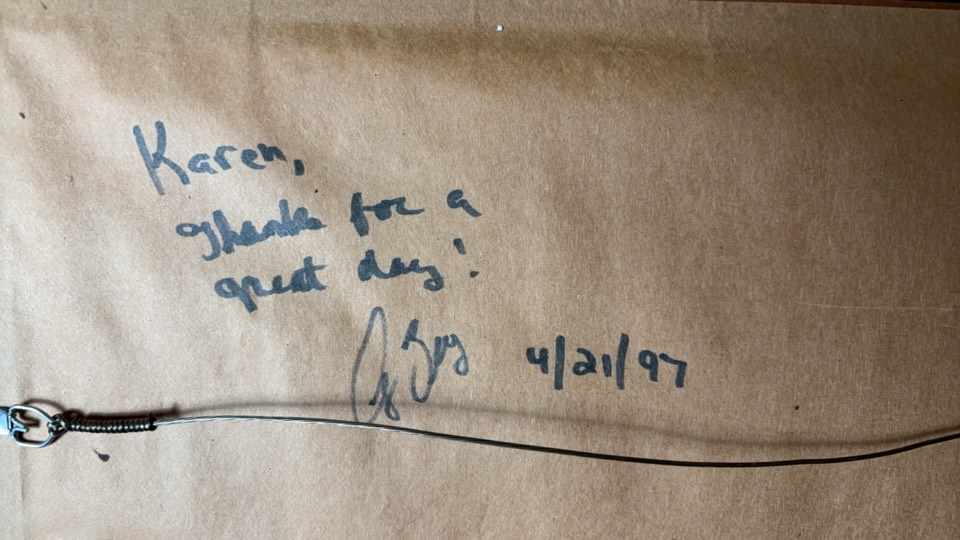 Karen,
Thanks for a
great day!
4/21/97